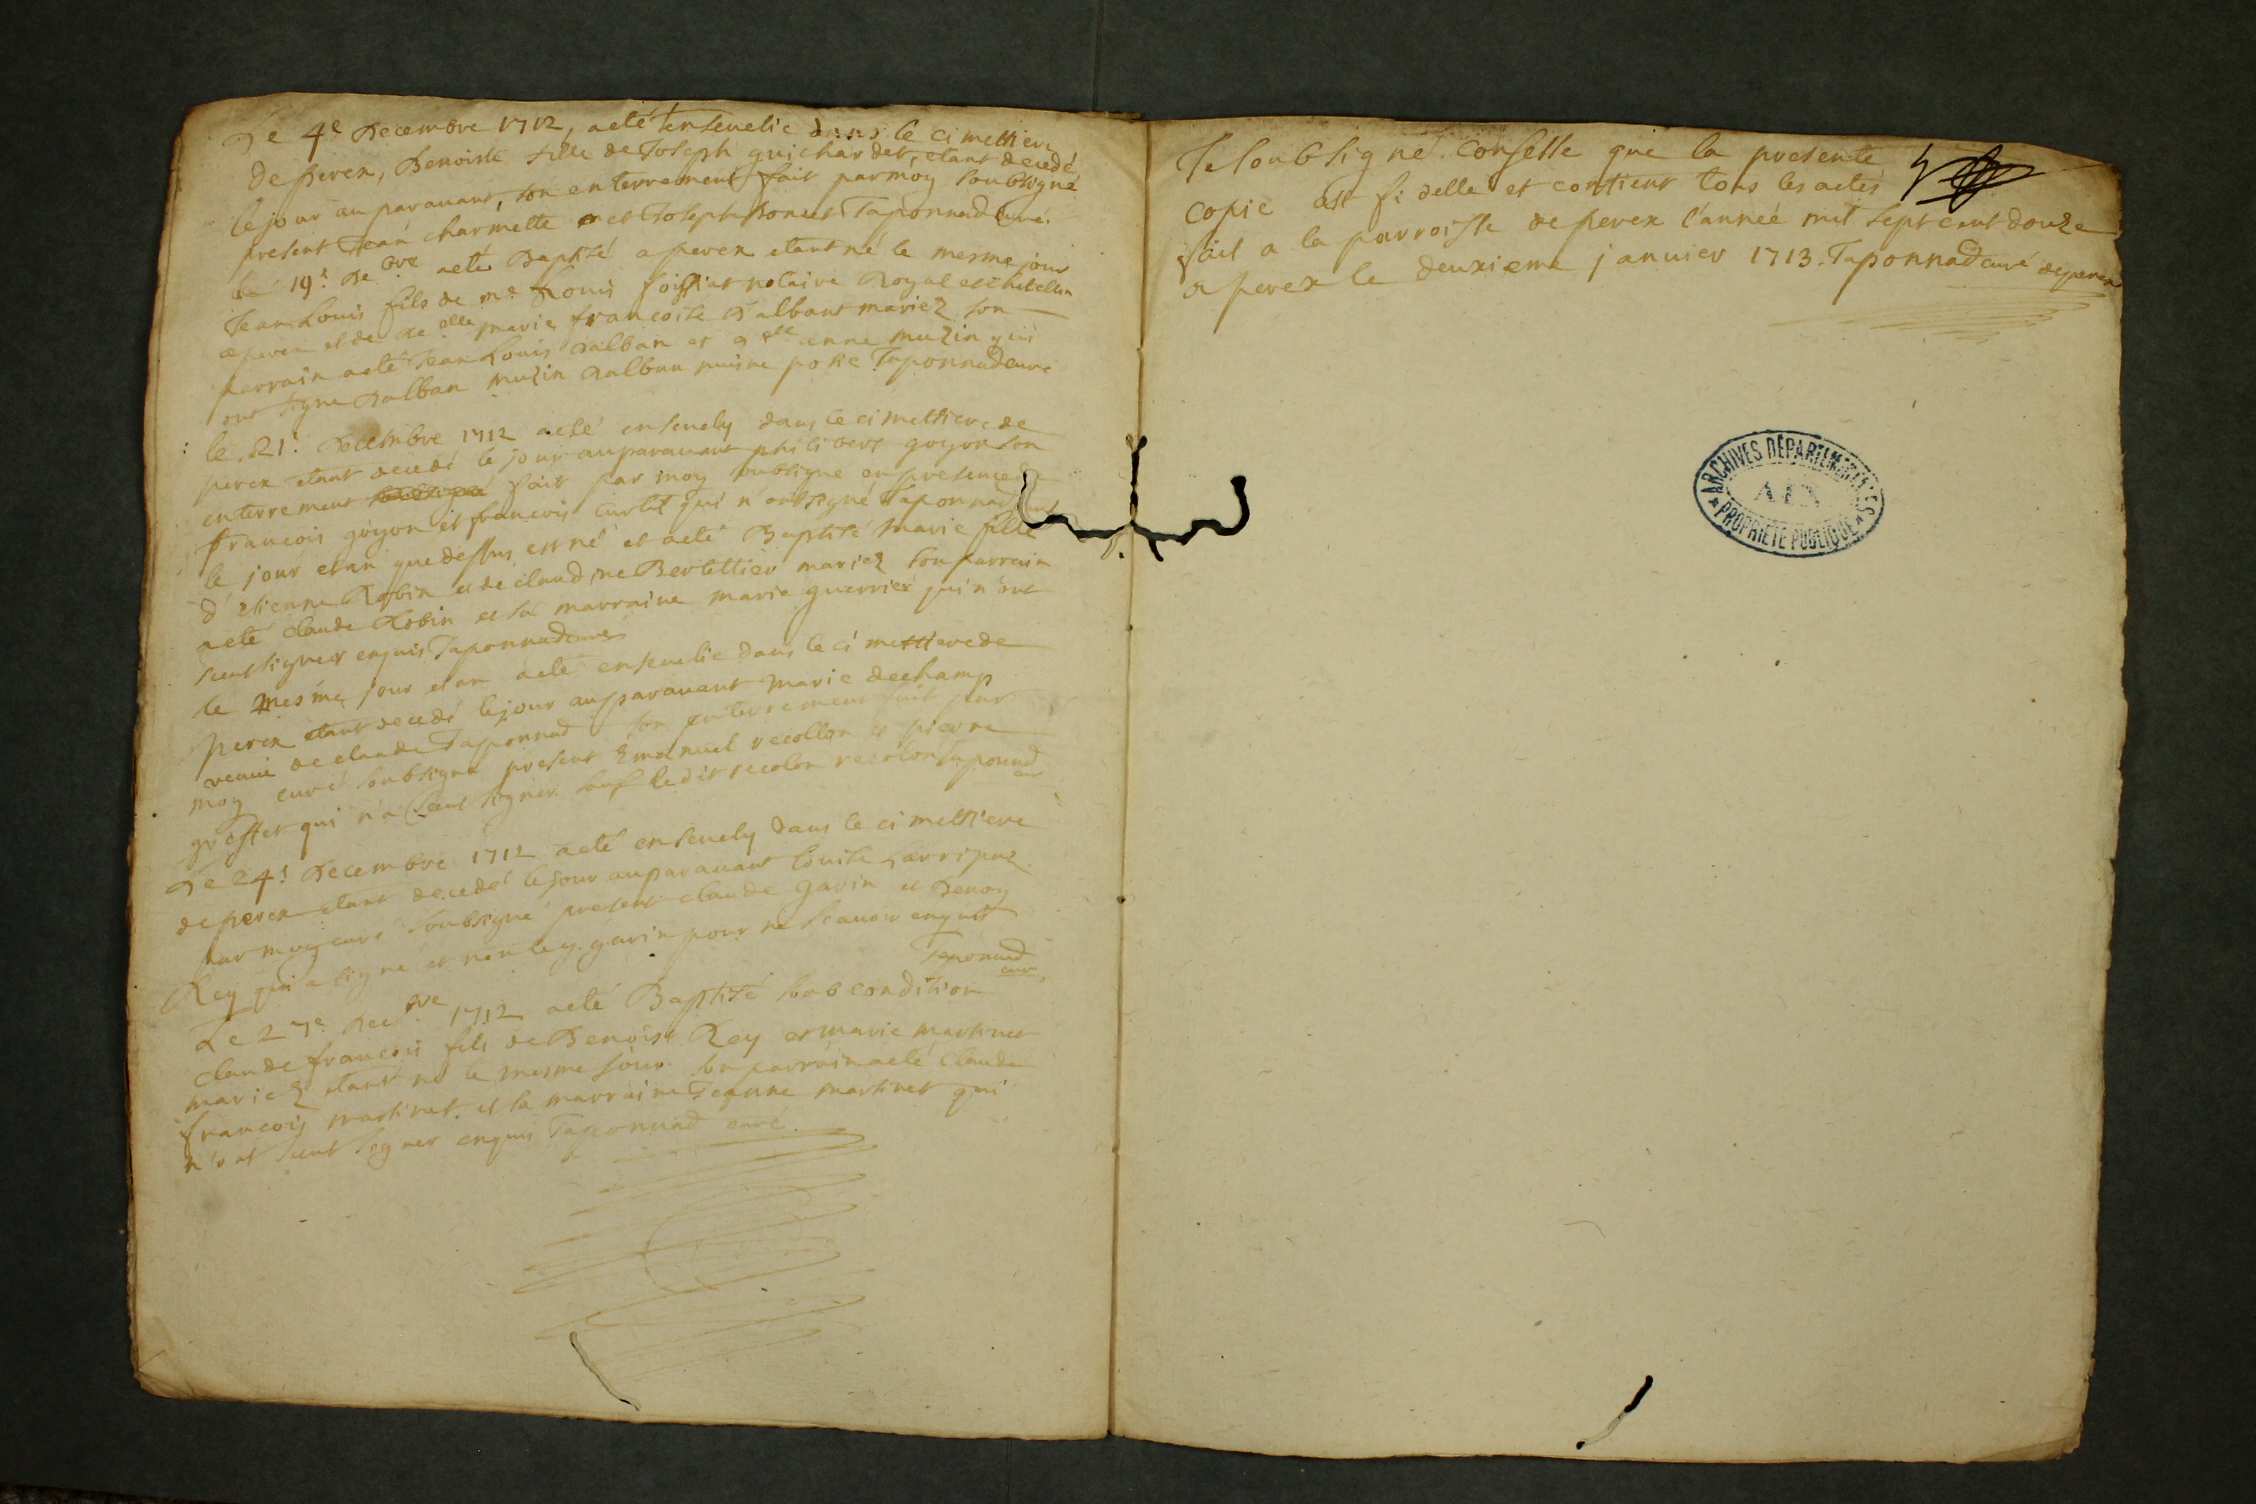 Le 4e Decembre 1712, acté ensevelie dans le cimettiere
de perex, Benoiste fille de Joseph guichardet, etant decedé
le jour auparavant, son enterrement fait par moy soubsigné
present Jean charmette et Joseph Taponnad curé.
le 19e. De bre acté Baptizé a perex etant né le mesme jour
Jean Louis fils de me. Louis notaire Royal et chatellin
a perex et de De elle marie francoise d'albant mariez son
parrain acté Jean Louis dalban et elle anne muzin qui
ont signe dalban muzin dalban Taponnad curé
le. 21e. Decembre 1712 acté ensevely dans le cimettiere de
perex etant decedé le jour auparavant philibert goyon son
enterrement fait par moy soubsigne en presence de
francois goyon et francois curtet qui n'ont signe Taponnad curé
le jour et an que dessus est né et acté Baptizé marie fille
d'etienne Robin et de claudine Bertettier mariez son parrain
acté claude Robin et sa marraine marie guerrier qui n'ont
sceut signer enquis Taponnad curé
le mesme jour et an acté ensevelie dans le cimettiere de
perex etant decedé le jour auparavant marie dechamp
veuve de claude Taponnad son enterrement fait par
moy curé soubsigné present Emanuel recollon et pierre
groffet qui n'a sceut signer. sauf ledit recolon recolon Taponnad
cur
Le 24e Decembre 1712 acté ensevely dans le cimettiere
de perex etant decedé le jour auparavant louise
par moy curé soubsigné present claude gavin et Benoy
Rey qui a signé et non ley. gavin pour ne scavoir enquis
Taponnad
cur
Le 27e. Decbre 1712 acté Baptizé sous condition
claude francois fils de Benoist Rey et marie martinet
mariez etant né le mesme jour. son parrain acté claude
francois martinet. et la marraine Jeanne martinet qui
n'ont sceut signer enquis Taponnad curé.
Je soubsigné. confesse que la presente
copie est fidelle et contient tous les actes
fait a la parroisse de perex l'année mil sept cent douze
a perex le deuxieme janvier 1713. Taponnad curé de perex
ARCHIVES DÉPARTEMENTALES
AIN
PROPRIÉTÉ PUBLIQUE